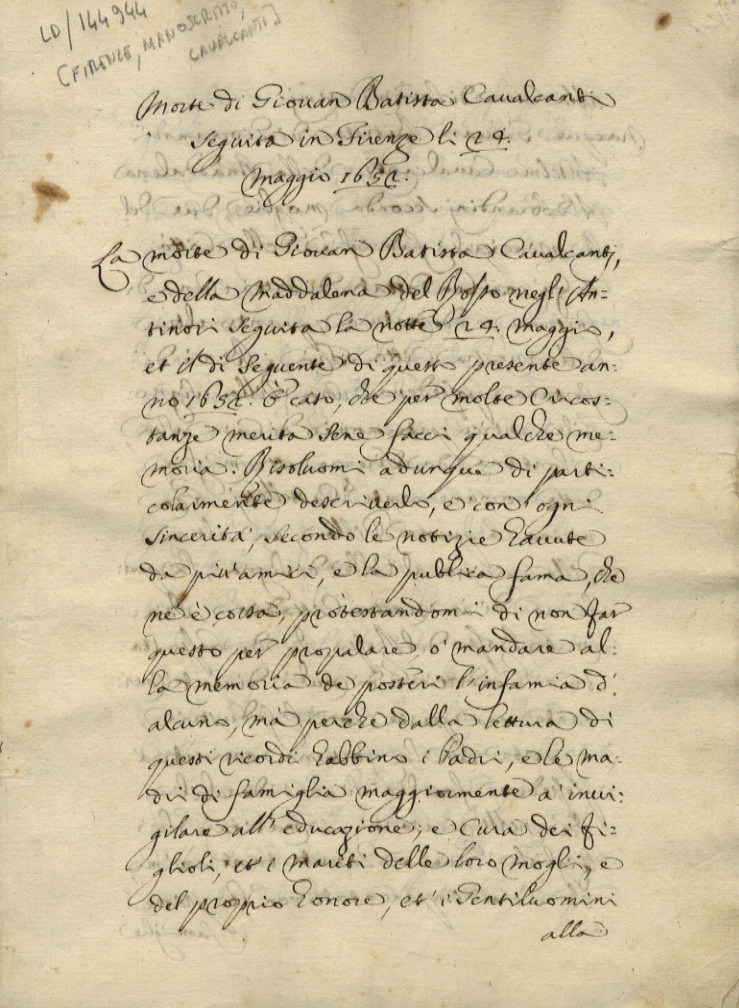 LD/144944
(FIRENZE, MANOSCRITTO,
CAVALCANTI]
Morte di Giouan Batista Caualcanti
Seguita in Firenze li 24.
Maggio 1652.
La morte di Giouan Batista Caualcanti,
e della Maddalena del Rosso negl'An=
tinori Seguita la notte 24. Maggio,
et il di Seguente di questo presente an=
no 1652. è caso, che per molte Circos=
tanze merita Sene facci qualche me=
moria. Risoluomi adunque di parti
colarmente descriuerlo, e con ogni
Sincerità, Secondo le notizie hauute
da più amici, e la publica fama, che
ne è corsa, protestandomi di non far
questo per propalare ò mandare al=
la memoria de posteri l'infamia d'
alcuno, mà perche dalla lettura di
questi ricordi habbino i Padri, e le ma=
dri di famiglia maggiormente a inui=
gilare all'educazione, e Cura dei fi=
glioli, et i mariti delle loro mogli, e
del proprio honore, et i Gentiluomini
alla